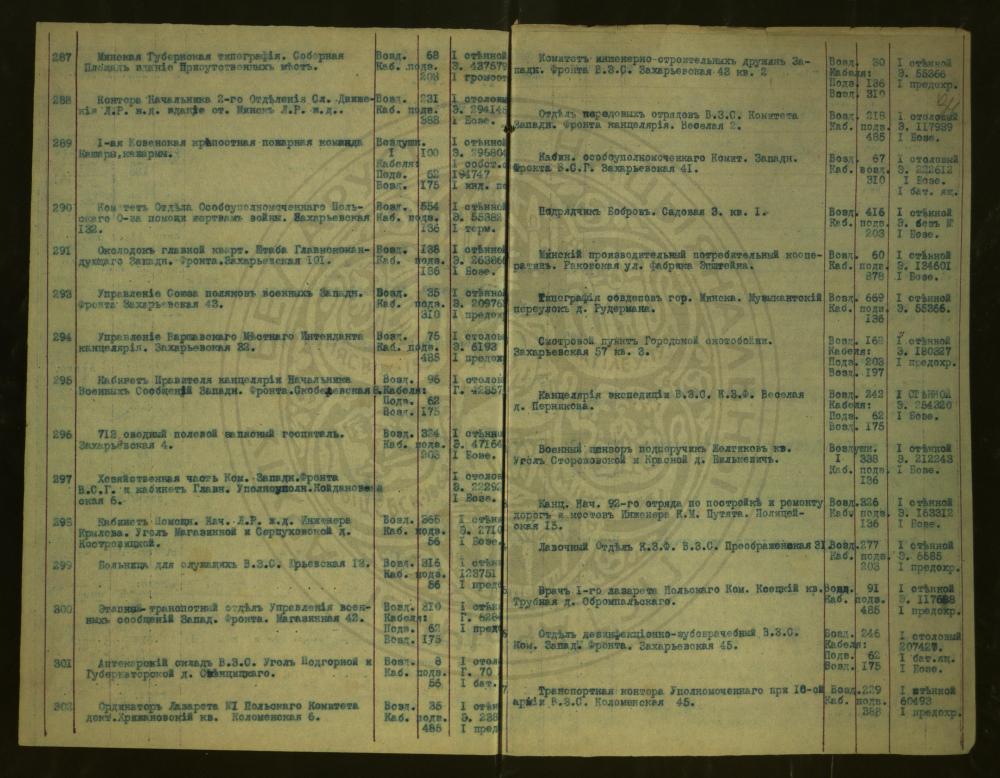 287 Минская Губернская типографія. Соборная Возд. 68 I стѣнной
Площадь зданіе Присутственныхъ мѣстъ. Каб. подв. Э. 437579
203 I громоот
288 Контора Начальника 2-го Отдѣленія Сл. Движе- Возд. 231 I столовы
нія Л.Р. ж.д. зданіе ст. Минскъ Л.Р. ж.д.. Каб. подв. Э. 29414
388 I Бозе.
289 I-ая Ковенская крѣпостная пожарная команда Воздушн. I стѣнно
Кашары, кашармы. I 100 Э. 296804
Кабеля: I собст.
Подв. 62 194747
Возд. 175 I инд.
290 Комитетъ Отдѣла Особоуполномоченнаго Поль- Возд. 554 I стѣнно
скаго О-ва помощи жертвамъ войны. Захарьевская Каб. подв. Э. 55382
132. 136 I терм.
291 Околодокъ главной кварт. Штаба Главнокоман- Возд. 138 I стѣнно
дующаго Западн. Фронта.Захарьевская 101. Каб. подв. Э. 26386
136 I Бозе.
293 Управленіе Союза поляковъ военныхъ Западн. Возд. 35 I стѣнно
Фронта Захарьевская 43. Каб. подв. Э. 20976
310 I предох
294 Управленіе Варшавскаго Мѣстнаго Интенданта Возд. 75 I столов
канцелярія. Захарьевская 32. Каб. подв. Э. 6193
485 I предох
295 Кабинетъ Правителя канцеляріи Начальника Возд. 96 I столов
Военныхъ Сообщеній Западн. Фронта.Скобелевская Кабеля: Г. 42857
Подв. 62
Возд. 175
296 712 сводный полевой запасный госпиталь. Возд. 324 I стѣнн
Захарьевская 4. Каб. подв. Э. 47164
203 I Бозе.
297 Хозяйственная часть Ком. Западн.Фронта I столов
В.С.Г. и кабинетъ Главн. Уполноуполн.Койдановс Э. 22292
ская 6. I Бозе.
298 Кабинетъ Помощн. Нач. Л.Р. ж.д. Инженера Возд. 366 I стѣнн
Крылова. Уголъ Магазинной и Серпуховской д. Каб. подв. Э. 2710
Костровицкой. 56 I Бозе.
299 Больница для служащихъ В.З.С. Юрьевская 12. Возд. 316 I стѣн
Каб. подв. 123751
56 I предо
300 Этапный-транспотный отдѣлъ Управленія воен- Возд. 310 I стѣн
ныхъ сообщеній Запад. Фронта. Магазинная 42. Кабеля: Г. 628
Подв. 62 I предо
Возд. 175
301 Аптекарскій складъ В.З.С. Уголъ Подгорной и Возд. 8 I стол
Губернаторской д. Свѣнцицкаго. Каб. подв. Г. 70
56 I бат.
302 Ординаторъ Лазарета №I Польскаго Комитета Возд. 35 I стѣн
докт.Крижановскій кв. Коломенская 6. Каб. подв. Э. 238
485 I пред
Комитетъ инженерно-строительныхъ дружинъ За- Возд. 30 I стѣнной
падн. Фронта В.З.С. Захарьевская 43 кв. 2 Кабеля: Э. 55366
Подв. 136 I предохр.
Возд. 310
Отдѣлъ передовыхъ отрядовъ В.З.С. Комитета Возд. 218 I столовый
Западн. Фронта канцелярія. Веселая 2. Каб. подв. Э. 117939
485 I Бозе.
Кабин. особоуполномоченнаго Комит. Западн. Возд. 67 I столовый
Фронта В.С.Г. Захарьевская 41. Каб. возд. Э. 222612
310 I Бозе.
I бат. ящ.
Подрядчикъ Бобровъ. Садовая 3. кв. I. Возд. 416 I стѣнной
Каб. подв. Э. безъ №
203 I Бозе.
Минскій производительный потребительный коопе- Возд. 60 I стѣнной
ративъ. Раковская ул. фабрика Эпштейна. Каб. подв. Э. 134601
378 I Бозе.
Типографія совдеповъ гор. Минска. Музыкантскій Возд. 669 I стѣнной
переулокъ д. Рудермана. Каб. подв. Э. 55366.
136
Смотровой пунктъ Городской скотобойни. Возд. 162 I стѣнной
Захарьевская 57 кв. 3. Кабеля: Э. 180327
Подв. 203 I предохр.
Возд. 197
Канцелярія экспедиціи В.З.С. К.З.Ф. Веселая Возд. 242 I стѣнной
д. Перникова. Кабеля: Э. 254320
Подв. 62 I Бозе.
Возд. 175
Военный цензоръ подпоручикъ Желтиковъ кв. Воздушн. I стѣнной
Уголъ Сторожовской и Красной д. Вильмевичъ. I 338 Э. 212243
Каб. подв. I Бозе.
136
Канц. Нач. 92-го отряда по постройкѣ и ремонту Возд.326 I стѣнной
дорогъ и мостовъ Инженера К.М. Путята. Полицей- Каб. подв. Э. 163312
ская 15. 136 I Бозе.
Лавочный Отдѣлъ К.З.Ф. В.З.С. Преображенская 31. Возд.277 I стѣнной
Каб. подв. Э. 6585
203 I предохр.
Врачъ I-го лазарета Польскаго Ком. Косцкій кв. Возд. 91 I стѣнной
Трубная д. Обромпальскаго. Каб. подв. Э. 117688
485 I предохр.
Отдѣлъ дезинфекціонно-зубоврачебный В.З.С. Возд. 246 I столовый
Ком. Запад. Фронта. Захарьевская 45. Кабеля: 207427.
Подв. 62 I бат.ящ.
Возд. 175 I Бозе.
Транспортная контора Уполномоченнаго при 10-ой Возд.229 I стѣнной
арміи В.З.С. Коломенская 45. Каб. подв. 60493
388 I предохр.